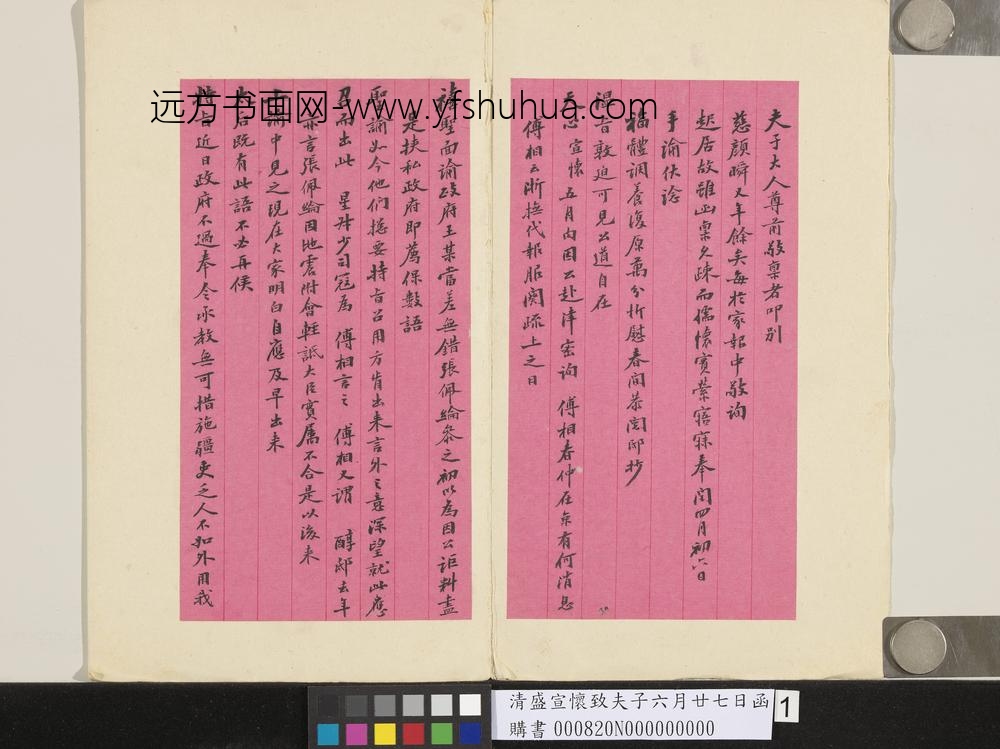 夫子大人尊前敬稟者叩別
慈顏瞬又年餘矣每於家報中敬詢
起居故雖函稟久疎而孺懷實縈寤寐奉閏四月初六日
手諭伏諗
福體調養復原萬分忻慰春間恭閱邸抄
溫旨敦迫可見公道自在
天心宣懷五月內因公赴津密詢 傅相春仲在京有何消息
傅相云浙撫代報服闋疏上之日
聖面諭政府王某當差無錯張佩綸參之初以為因公詎料盡
是挾私政府即薦保數語
聖諭如今他們總要特旨召用方肯出來言外之意深望就此應
召而出此 星階少司寇為 傅相言之 傅相又謂 醇邸去年
亦言張佩綸因地震附會輕詆大臣實屬不合是以後來
中見之現在大家明白自應及早出來
既有此語不必再俟
近日政府不過奉令承教無可措施疆吏乏人不如外用我
远方书画网-www.yfshuhua.com
清盛宣懷致夫子六月廿七日函
購書 000820N000000000
1